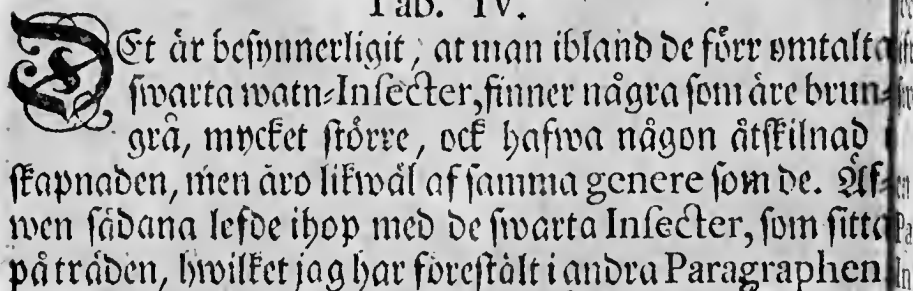 Tab. IV.
DEt är besynnerligit, at man ibland de förr omtalta
swarta watn-Insecter, finner några som äre brun-
grå, mycket större, ock hafwa någon åtskilnad i
skapnaden, men äro likwäl af samma genere som de. Äf-
wen sådana lefde ihop med de swarta Insecter, som sitta
på träden, hwilket jag har förestält i andra Paragraphen